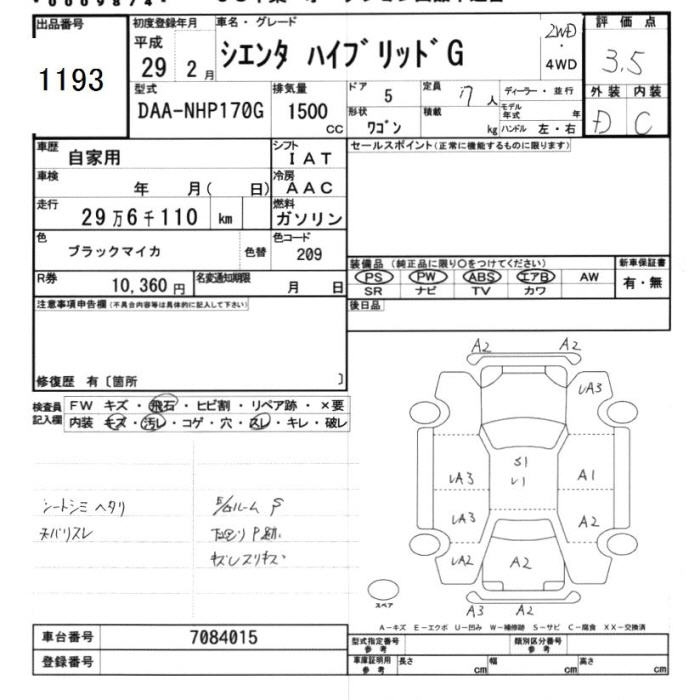 出品番号
1193
初度登録年月
平成
29 2月
車名・グレード
シエンタ ハイブリッドG
2WD
・
4WD
評価点
3.5
外装 内装
D C
型式
DAA-NHP170G
排気量
1500
cc
ドア
5
定員
7人
形状
ワゴン
積載
kg
ディーラー・並行
モデル年式 年
ハンドル 左・右
車歴
自家用
シフト
IAT
車検
年 月( 日)
冷房
AAC
走行
29万6千110 km
燃料
ガソリン
色
ブラックマイカ
色替
色コード
209
R券
10,360円
名変通知期限
月 日
セールスポイント(正常に機能するものに限ります)
装備品(純正品に限り○をつけてください)
PS PW ABS エアB AW
SR ナビ TV カワ
新車保証書
有・無
後日品
注意事項申告欄(不具合内容等は具体的に記入して下さい)
修復歴 有〔箇所 〕
検査員記入欄
FW キズ・飛石・ヒビ割・リペア跡・×要
内装 キズ・汚レ・コゲ・穴・スレ・キレ・破レ
シートシミ ヘタリ
ネバリスレ
A2 A2
UA3
S1
U1
UA3 A1
UA3 A2
UA2 A2
A3 A2
スペア
A-キズ E-エクボ U-凹み W-補修跡 S-サビ C-腐食 XX-交換済
車台番号
7084015
登録番号
型式指定番号
参考
類別区分番号
参考
車庫証明用
参考
長さ cm
幅 cm
高さ cm